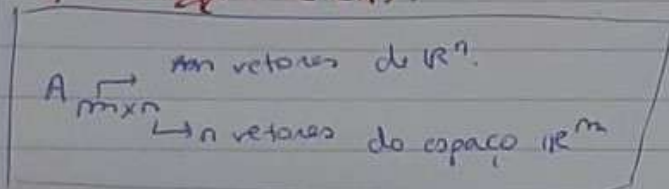 m vetores de ℝⁿ.
A m×n
n vetores do espaço ℝᵐ